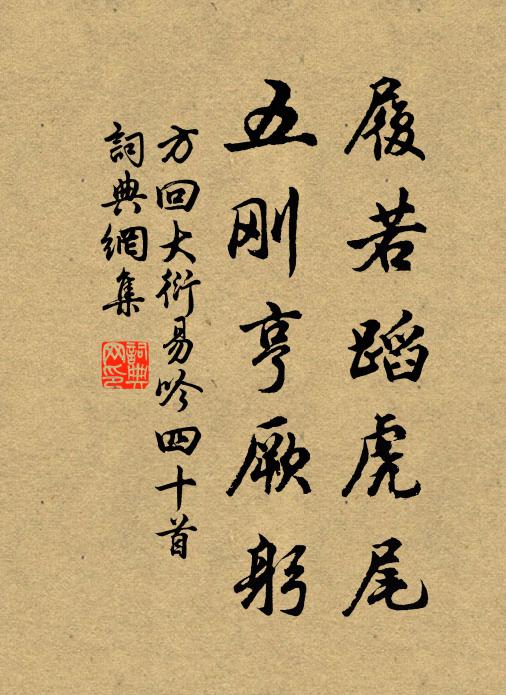 履若蹈虎尾
五刚亨厥躬
方回大衍易吟四十首
詞典網集
詞典網印